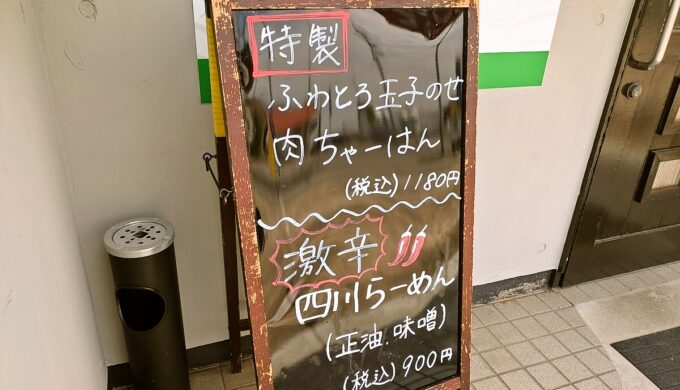 特製
ふわとろ玉子のせ
肉ちゃーはん
(税込)1180円
激辛
四川らーめん
(正油.味噌)
(税込)900円